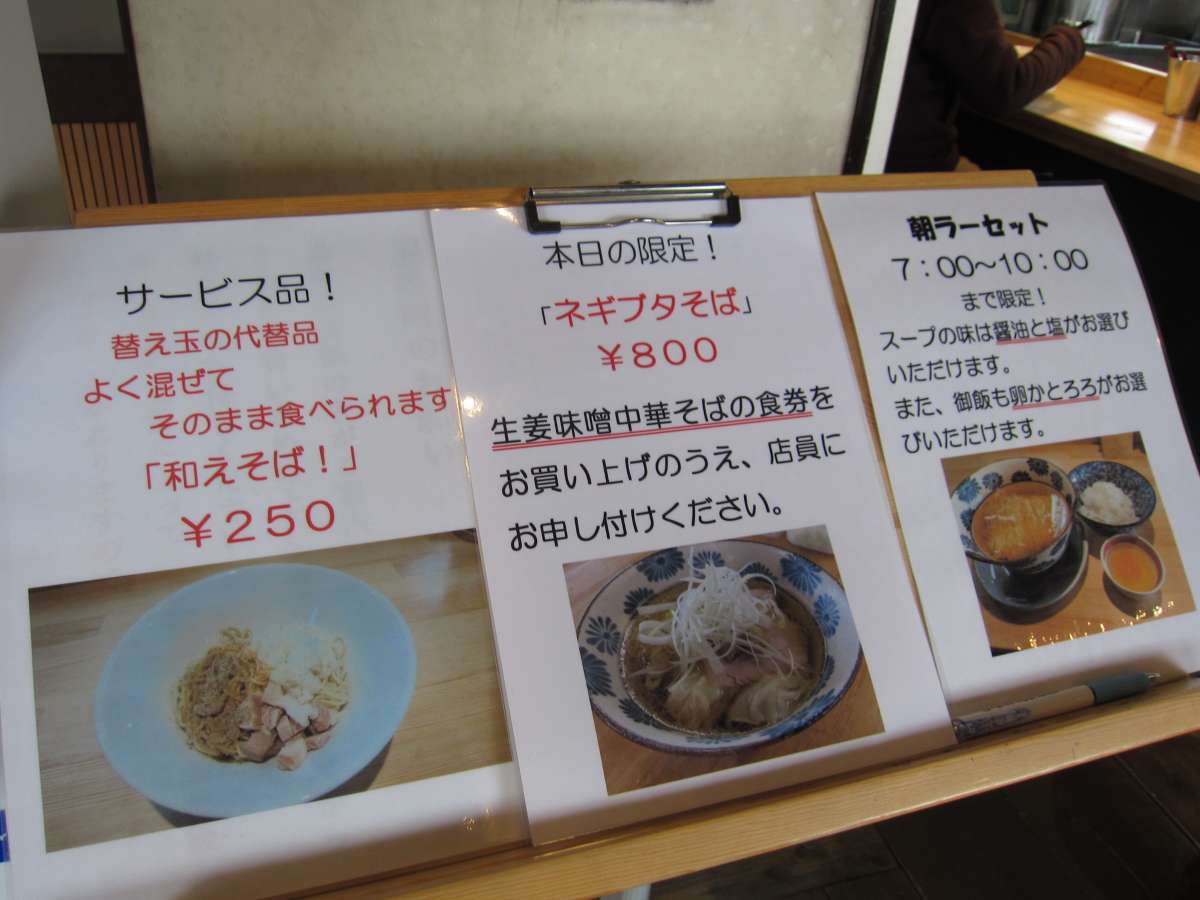 サービス品！
替え玉の代替品
よく混ぜて
そのまま食べられます
「和えそば！」
￥２５０
本日の限定！
「ネギブタそば」
￥８００
生姜味噌中華そばの食券を
お買い上げのうえ、店員に
お申し付けください。
朝ラーセット
７：００～１０：００
まで限定！
スープの味は醤油と塩がお選び
いただけます。
また、御飯も卵かとろろがお選
びいただけます。